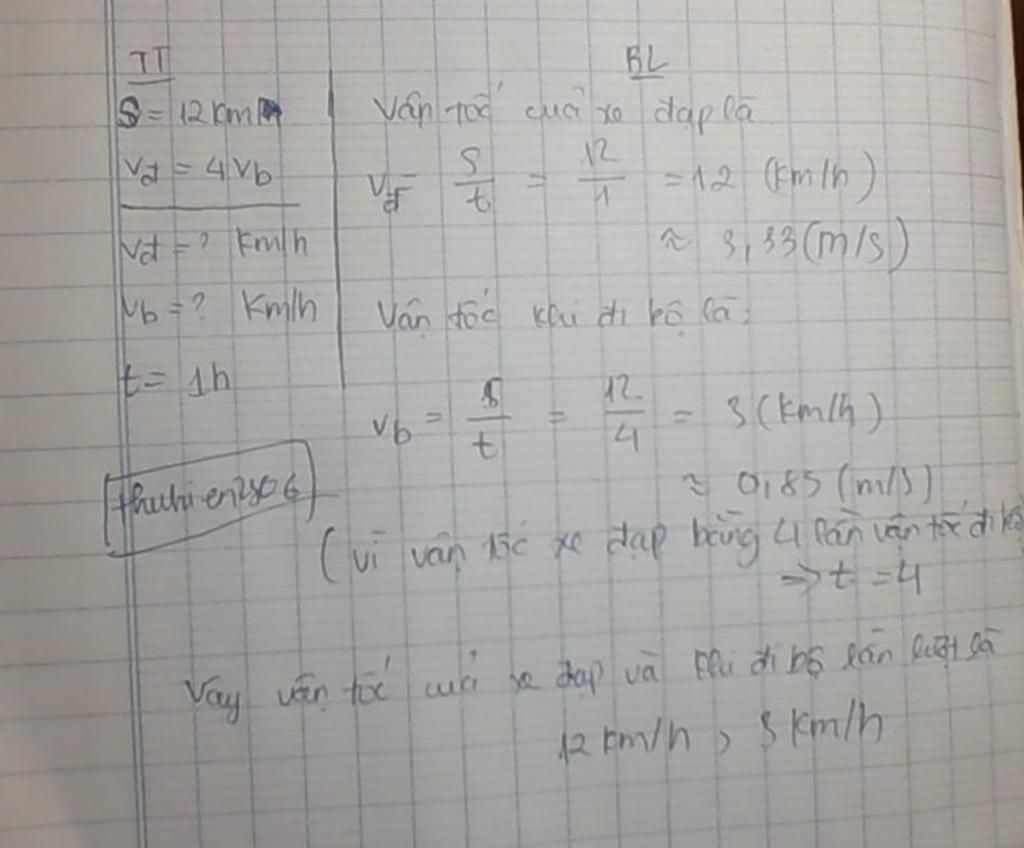 TT
S = 12 km
vđ = 4 vb
vđ = ? km/h
vb = ? Km/h
t = 1h
thuhien2806
BL
Vận tốc của xe đạp là
vđ = S/t = 12/1 = 12 (km/h)
≈ 3,33 (m/s)
Vận tốc khi đi bộ là:
vb = S/t = 12/4 = 3 (km/h)
≈ 0,85 (m/s)
(vì vận tốc xe đạp bằng 4 lần vận tốc đi bộ
=> t = 4
Vậy vận tốc của xe đạp và khi đi bộ lần lượt là
12 km/h, 3 km/h